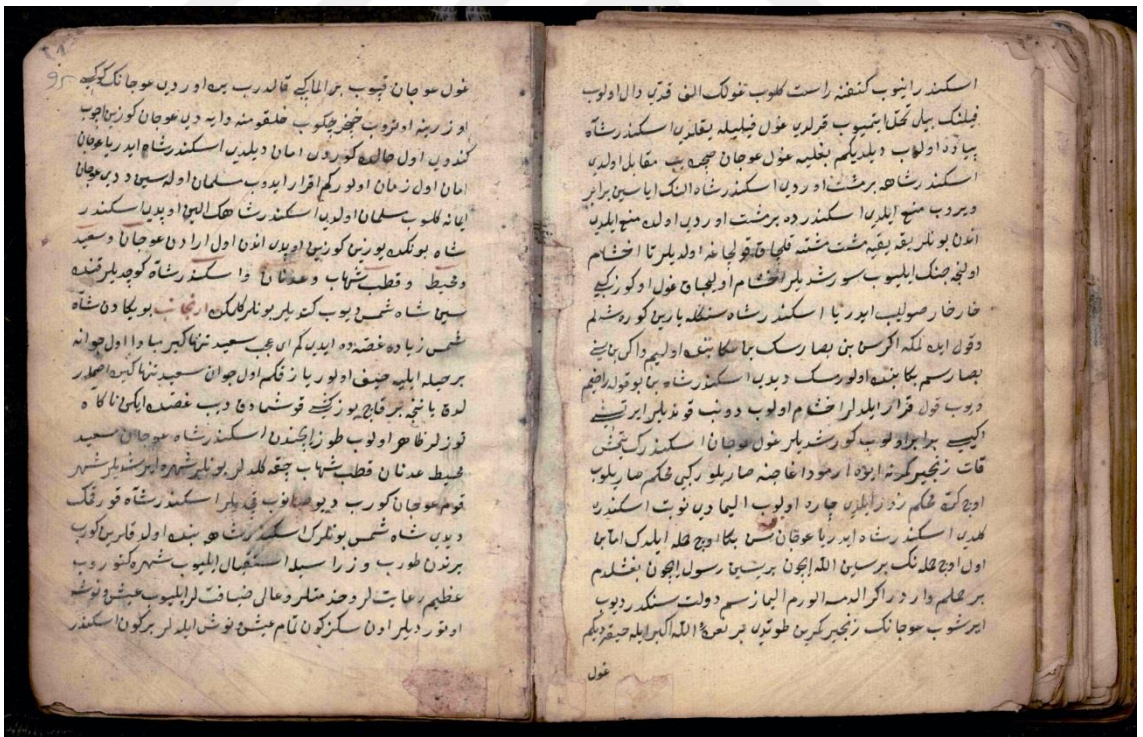 اسكندر را نیوب كتفنه راست كلوب غولك الف قدی دال اولوب
فیلنك بیلی تحمل ایتمیوب قرلدی غول فیلیله یقلدی اسكندر شاه
پیاده اولوب دیلدیكه بغلیه غول عوجان صچرایب مقابل اولدی
اسكندر شاهه بر مشت اوردی اسكندر شاه النك ایاسین برابر
ویروب منع ایلدی اسكندر ده بر مشت اوردی اولده منع ایلدی
اندن بونلر یقه یقیه مشت مشته قلچاق قولجاغه اولدیلر تا اخشام
اولنجه جنك ایلیوب سورشدیلر اخشام اولیجاق غول اوكوز كبی
خار خار صولیب ایدر یا اسكندر شاه سنكله یارین كوره شلم
و قول ایده لمكه اكر سن بنی بصارسك بن سكا بنده اولیم داكر بن سنی
بصارسم بكا بنده اولورسك دیدی اسكندر شاه بن بو قوله راضیم
دیوب قول قرار ایلدلر اخشام اولوب دونب قوندیلر ایرتسی
ایكیسی برابر اولوب كورشدیلر غول عوجان اسكندرك یتمش
قات زنجیر كمرنه ایوه ارمود اغاجنه صاریلور كبی محكم صاریلوب
اوچ كره محكم زور ایلدی چاره اولوب الیمادی نوبت اسكندره
كلدی اسكندر شاه ایدر یا عوجان سن بكا اوچ حمله ایلدك اما بن
اول اوچ حمله نك برسین الله ایچون برسین رسول ایچون بغشلدم
بر حملم واردر اكر الدمسه الورم الیمازسم دولت سنكدر دیوب
ایرشوب عوجانك زنجیر كمرین طوتدی بر نعره الله اكبر ایله حیقردیكم
غول
95
غول عوجان قپوب بر الما كبی قالدرب یره اوردی عوجانك كوكسی
اوزرینه اوتروب خنجر چكوب حلقومنه دایه دی عوجان كوزین اچوب
كندوی اول حالده كوردی امان دیلدی اسكندر شاه ایدر یا عوجان
امان اول زمان اولور كم اقرار ایدوب مسلمان اوله سین ددی عوجان
ایمانه كلوب مسلمان اولدی اسكندر شاهك الین اوپدی اسكندر
شاه بونكده یوزین كوزین اوپدی اندن اول ارادن عوجان و سعید
و محیط و قطب شهاب و عدنان و اسكندر شاه كوچدیلر قنده
سین شاه شمس دیوب كتدیلر بونلر كلمكده از نجانب بو یكادن شاه
شمس زیاده غصه ده ایدی كم ای عجب سعید تنها كیرب مبادا اول جوانه
بر حیله ایلیه حیف اولور یازقكم اول جوان سعید تنها كیرب اصحلر
لدی یا نیچه بر قاچ یوز كشی قوشمادی دیب غصده ایكن ناكاه
توزلر ظاهر اولوب طوز ایچندن اسكندر شاه عوجان سعید
محیط عدنان قطب شهاب چقه كلدلر بونلر شهره ایرشدیلر شهر
قومی عوجان كورب دیو صانوب قچدیلر اسكندر شاه قورقمك
دیدی شاه شمس بونلرك اسكندر شاهه بنده اولدقلرین كورب
یرندن طورب وزراسیله استقبال ایلیوب شهره كتوروب
عظیم رعایتلر و خذمتلر و عالی ضیافتلر ایلیوب عیش و نوشه
اوتوردیلر اون سكز كون تمام عیش و نوش ایلدلر بر كون اسكندر